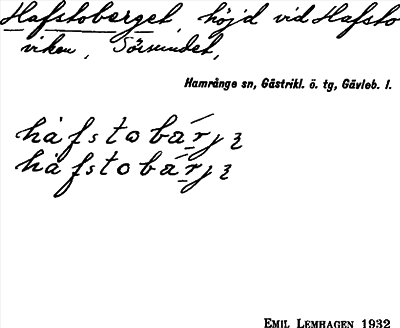 Hafstoberget, höjd vid Hafsto
viken, Sörsundet,
Hamrånge sn, Gästrikl. ö. tg, Gävleb. l.
håfstobárjȝ
håfstobárjȝ
EMIL LEMHAGEN 1932